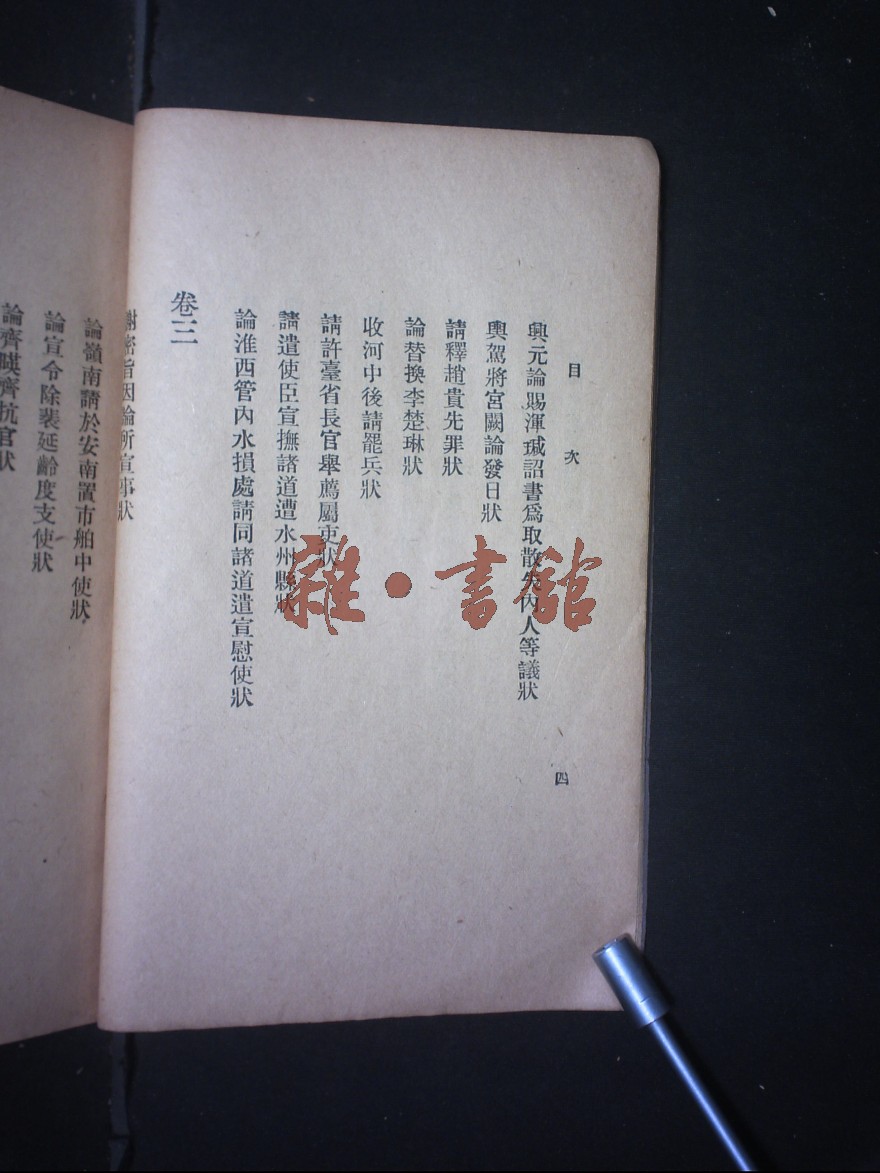 目次
四
興元論賜渾瑊詔書爲取散失內人等議狀
輿駕將宮闕論發日狀
請釋趙貴先罪狀
論替換李楚琳狀
收河中後請罷兵狀
請許臺省長官舉薦屬吏狀
請遣使臣宣撫諸道遭水州縣狀
論淮西管內水損處請同諸道遣宣慰使狀
卷三
謝密旨因論所宣事狀
論嶺南請於安南置市舶中使狀
論宣令除裴延齡度支使狀
論齊暎齊抗官狀
雜·書館